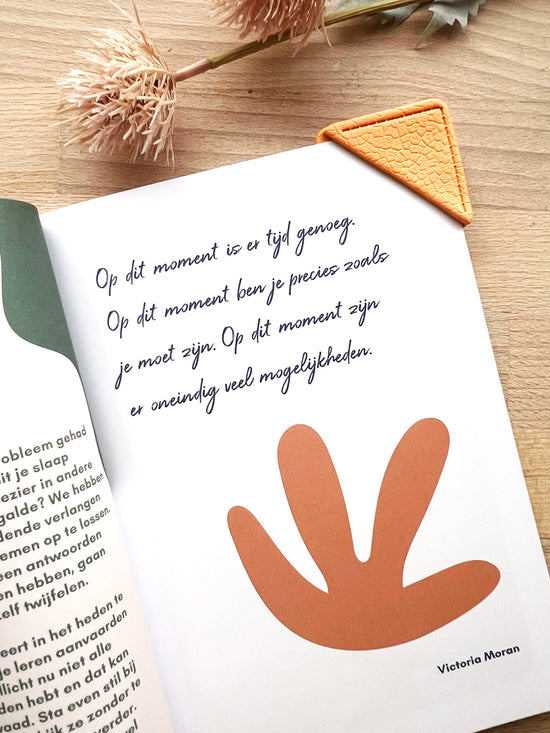 Op dit moment is er tijd genoeg.
Op dit moment ben je precies zoals
je moet zijn. Op dit moment zijn
er oneindig veel mogelijkheden.
Victoria Moran
obleem gehad
it je slaap
ezier in andere
galde? We hebben
dende verlangen
emen op te lossen.
een antwoorden
en hebben, gaan
elf twijfelen.
eert in het heden te
je leren aanvaarden
llicht nu niet alle
den hebt en dat kan
vaad. Sta even stil bij
lijk ze zonder te
verder.
vel